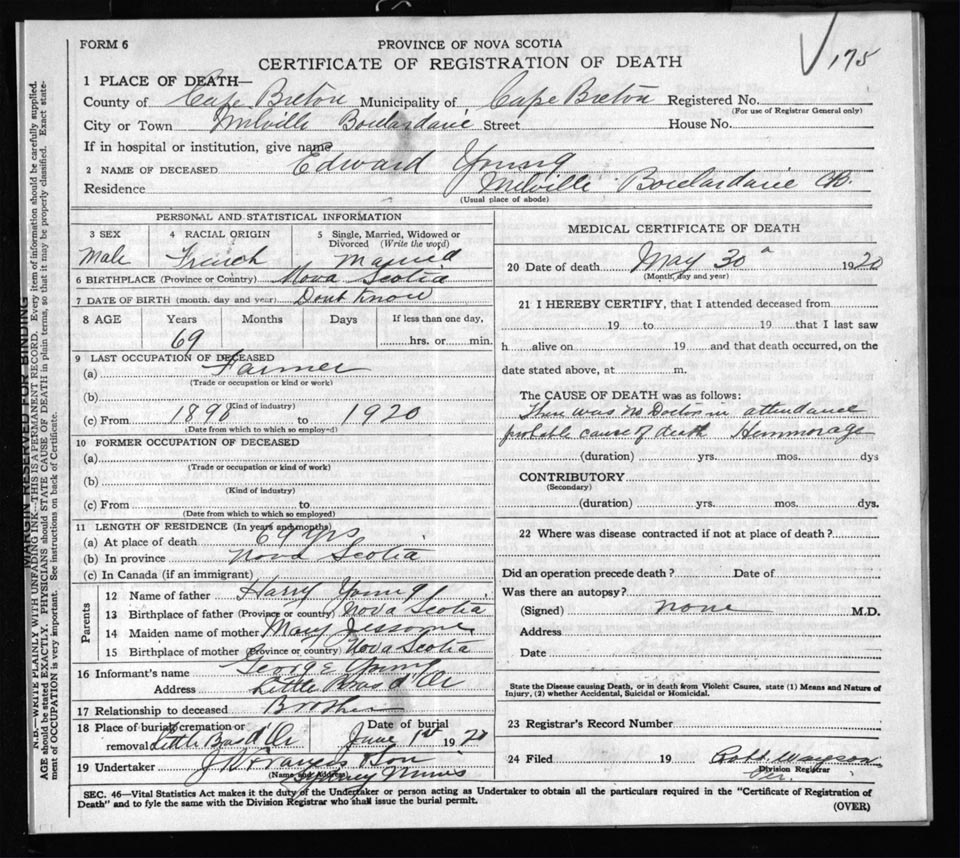 FORM 6
PROVINCE OF NOVA SCOTIA
175
CERTIFICATE OF REGISTRATION OF DEATH
1 PLACE OF DEATH—
County of Cape Breton Municipality of Cape Breton Registered No.
(For use of Registrar General only)
City or Town Milville Boulardarie Street House No.
If in hospital or institution, give name
2 NAME OF DECEASED Edward Young
Residence Milville Boulardarie CB.
(Usual place of abode)
PERSONAL AND STATISTICAL INFORMATION
3 SEX 4 RACIAL ORIGIN 5 Single, Married, Widowed or Divorced (Write the word)
Male French Married
6 BIRTHPLACE (Province or Country) Nova Scotia
7 DATE OF BIRTH (month, day and year) Dont Know
8 AGE Years Months Days If less than one day,
69 hrs. or min.
9 LAST OCCUPATION OF DECEASED
(a) Farmer
(Trade or occupation or kind or work)
(b)
(Kind of industry)
(c) From 1890 to 1920
(Date from which to which so employed)
10 FORMER OCCUPATION OF DECEASED
(a)
(Trade or occupation or kind of work)
(b)
(Kind of industry)
(c) From to
(Date from which to which so employed)
11 LENGTH OF RESIDENCE (In years and months)
(a) At place of death 69 yrs
(b) In province Nova Scotia
(c) In Canada (if an immigrant)
Parents
12 Name of father Harry Young
13 Birthplace of father (Province or country) Nova Scotia
14 Maiden name of mother Mary Jessome
15 Birthplace of mother (Province or country) Nova Scotia
16 Informant's name George Young
Address Little Bras d'Or
17 Relationship to deceased Brother
18 Place of burial, cremation or removal Little Bras d'Or Date of burial June 1st 1920
19 Undertaker J W Francis & Son
(Name and Address)
Sydney Mines
MEDICAL CERTIFICATE OF DEATH
20 Date of death May 30 1920
(Month, day and year)
21 I HEREBY CERTIFY, that I attended deceased from
19 to 19 that I last saw
h alive on 19 and that death occurred, on the
date stated above, at m.
The CAUSE OF DEATH was as follows:
There was no Doctor in attendance
probable cause of death Hemmorage
(duration) yrs. mos. dys
CONTRIBUTORY
(Secondary)
(duration) yrs. mos. dys.
22 Where was disease contracted if not at place of death?
Did an operation precede death? Date of
Was there an autopsy?
(Signed) none M.D.
Address
Date
State the Disease causing Death, or in death from Violent Causes, state (1) Means and Nature of
Injury, (2) whether Accidental, Suicidal or Homicidal.
23 Registrar's Record Number
24 Filed 19 Robt
Division Registrar
SEC. 46—Vital Statistics Act makes it the duty of the Undertaker or person acting as Undertaker to obtain all the particulars required in the "Certificate of Registration of
Death" and to fyle the same with the Division Registrar who shall issue the burial permit.
(OVER)
MARGIN RESERVED FOR BINDING
N.B.—WRITE PLAINLY WITH UNFADING INK—THIS IS A PERMANENT RECORD. Every item of information should be carefully supplied.
AGE should be stated EXACTLY. PHYSICIANS should STATE CAUSE OF DEATH in plain terms, so that it may be properly classified. Exact statement of OCCUPATION is very important. See instructions on back of Certificate.